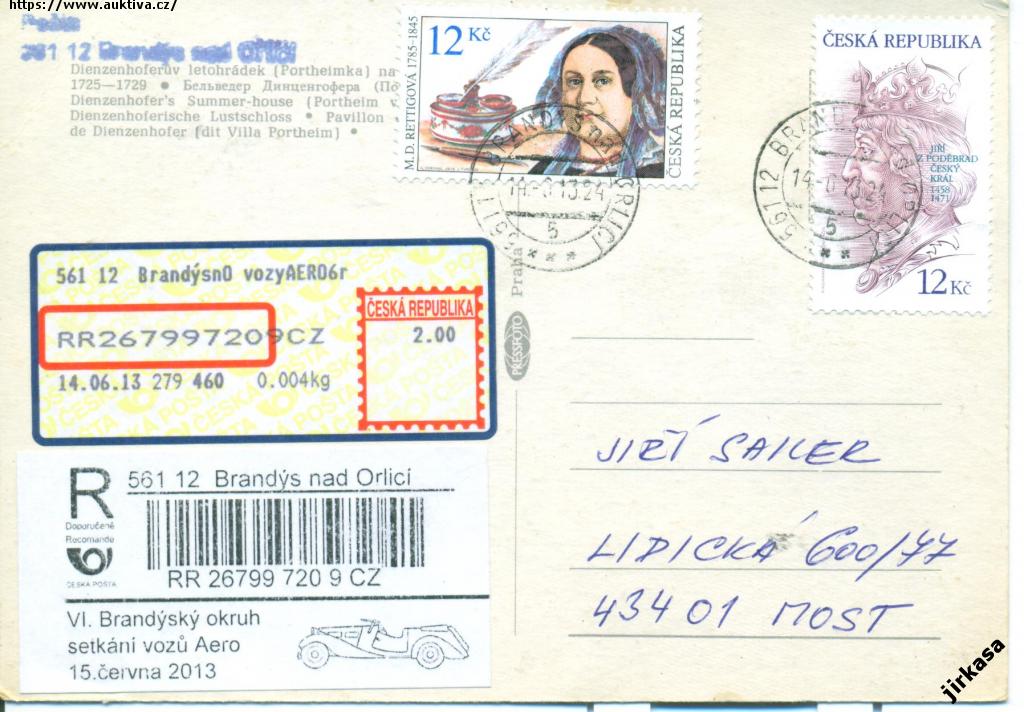 https://www.auktiva.cz/
Pošta
561 12 Brandýs nad Orlicí
Dienzenhoferův letohrádek (Portheimka) na
1725—1729 • Бельведер Динценгофера (По
Dienzenhofer's Summer-house (Portheim v
Dienzenhoferische Lustschloss • Pavillon
de Dienzenhofer (dit Villa Portheim) •
12 Kč
M.D. RETTIGOVÁ 1785-1845
ČESKÁ REPUBLIKA
561 12 BRANDÝS nad ORLICÍ
14.-6.13.24
5
ČESKÁ REPUBLIKA
JIŘÍ
Z PODĚBRAD
ČESKÝ
KRÁL
1458
1471
12 Kč
561 12 BRANDÝS nad ORLICÍ
14.-6.13.24
5
Praha
PRESSFOTO
561 12 Brandýsn0 vozyAERO6r
RR267997209CZ
14.06.13 279 460 0.004kg
ČESKÁ REPUBLIKA
2.00
R
Doporučeně
Recommandé
ČESKÁ POŠTA
561 12 Brandýs nad Orlicí
RR 26799 720 9 CZ
VI. Brandýský okruh
setkání vozů Aero
15.června 2013
JIŘÍ SAILER
LIDICKÁ 600/77
434 01 MOST
jirkasa